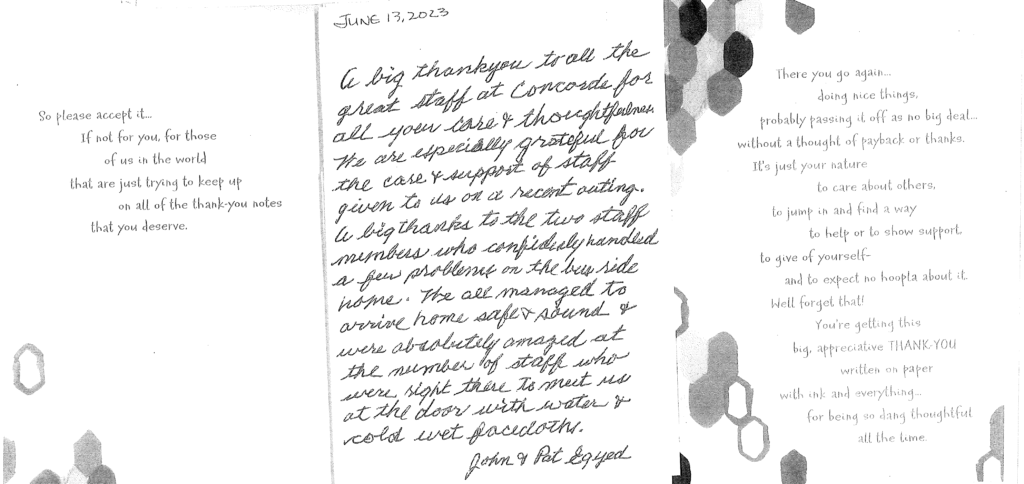 So please accept it...
If not for you, for those
of us in the world
that are just trying to keep up
on all of the thank-you notes
that you deserve.
JUNE 13, 2023
A big thankyou to all the
great staff at Concorde for
all your care & thoughtfulness.
We are especially grateful for
the care & support of staff
given to us on a recent outing.
A big thanks to the two staff
members who confidently handled
a few problems on the bus ride
home. We all managed to
arrive home safe & sound &
were absolutely amazed at
the number of staff who
were right there to meet us
at the door with water &
cold wet facecloths.
John & Pat Egyed
There you go again...
doing nice things,
probably passing it off as no big deal...
without a thought of payback or thanks.
It's just your nature
to care about others,
to jump in and find a way
to help or to show support,
to give of yourself-
and to expect no hoopla about it.
Well forget that!
You're getting this
big, appreciative THANK-YOU
written on paper
with ink and everything...
for being so dang thoughtful
all the time.